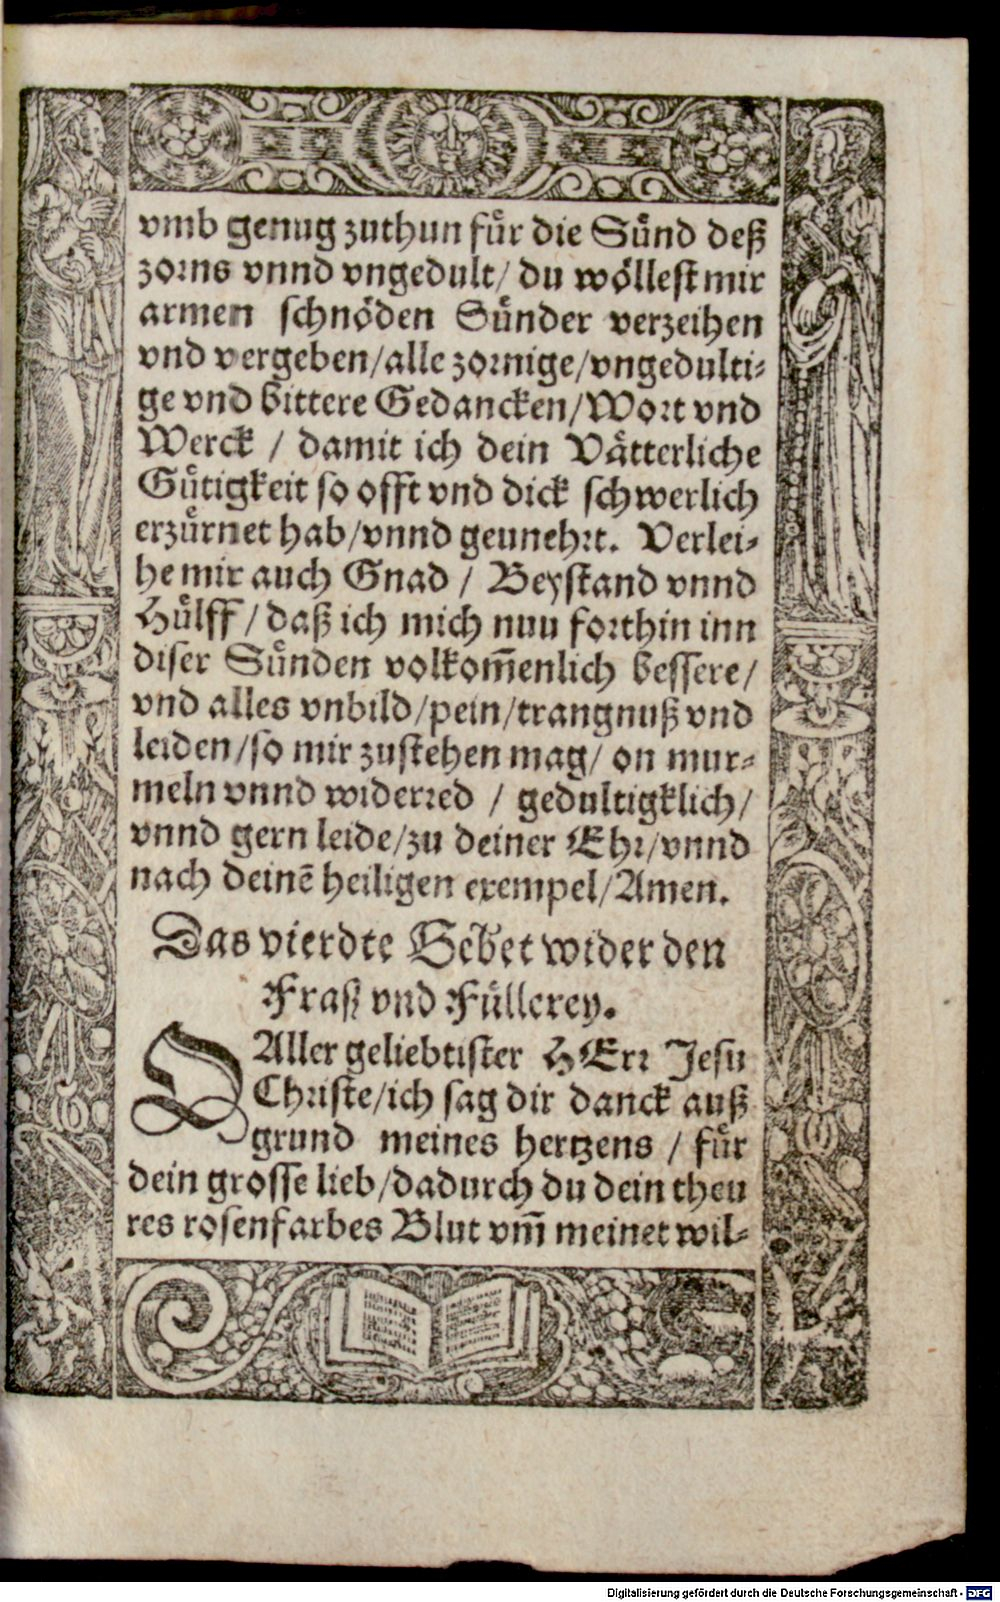 vmb genug zuthun fuͤr die Suͤnd deß
zorns vnnd vngedult/ du woͤllest mir
armen schnoͤden Suͤnder verzeihen
vnd vergeben/alle zornige/vngedulti⸗
ge vnd bittere Gedancken/Wort vnd
Werck / damit ich dein Vaͤtterliche
Guͤtigkeit so offt vnd dick schwerlich
erzuͤrnet hab/vnnd geunehrt. Verlei⸗
he mir auch Gnad / Beystand vnnd
Huͤlff/ daß ich mich nuu forthin inn
diser Suͤnden volkom̃enlich bessere/
vnd alles vnbild/pein/trangnuß vnd
leiden/so mir zustehen mag/ on mur⸗
meln vnnd widerred / gedultigklich/
vnnd gern leide/zu deiner Ehr/vnnd
nach deinẽ heiligen exempel/Amen.
Das vierdte Gebet wider den
Fraß vnd Füllerey.
O Aller geliebtister HErr Jesu
Christe/ich sag dir danck auß
grund meines hertzens / fuͤr
dein grosse lieb/dadurch du dein theu
res rosenfarbes Blut vm̃ meinet wil⸗
Digitalisierung gefördert durch die Deutsche Forschungsgemeinschaft - DFG